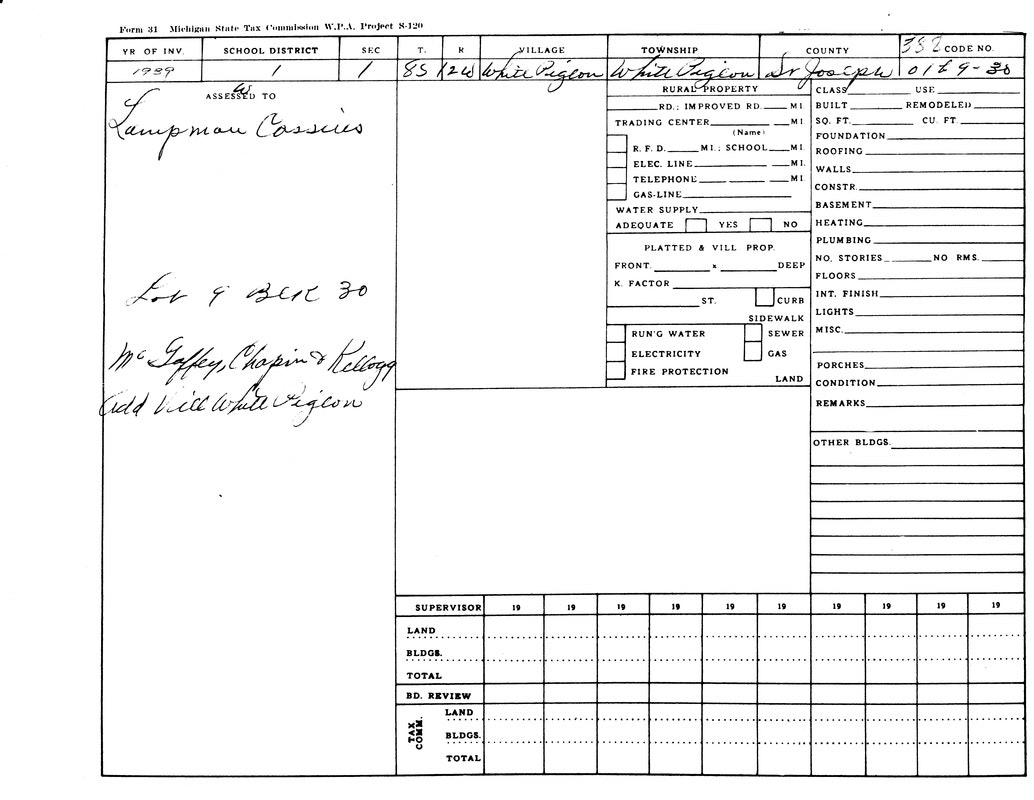 Form 31 Michigan State Tax Commission W.P.A. Project S-120
YR OF INV. SCHOOL DISTRICT SEC T. R VILLAGE TOWNSHIP COUNTY 382 CODE NO.
1939 1 1 8S 12W White Pigeon White Pigeon St Joseph
ASSESSED TO
Lampman Cassius
W
Lot 9 BLK 30
Mc Gaffey, Chapin & Kellogg
Add Vill White Pigeon
RURAL PROPERTY
RD.; IMPROVED RD. MI.
TRADING CENTER MI.
(Name)
R. F. D. MI.; SCHOOL MI.
ELEC. LINE MI.
TELEPHONE MI.
GAS-LINE
WATER SUPPLY
ADEQUATE YES NO
PLATTED & VILL PROP.
FRONT. x DEEP
K. FACTOR
ST. CURB
SIDEWALK
RUN'G WATER SEWER
ELECTRICITY GAS
FIRE PROTECTION
LAND
CLASS USE
BUILT REMODELED
SQ. FT. CU. FT.
FOUNDATION
ROOFING
WALLS
CONSTR.
BASEMENT
HEATING
PLUMBING
NO. STORIES NO RMS.
FLOORS
INT. FINISH
LIGHTS
MISC.
PORCHES
CONDITION
REMARKS
OTHER BLDGS.
SUPERVISOR 19 19 19 19 19 19 19 19 19 19
LAND
BLDGS.
TOTAL
BD. REVIEW
TAX COMM.
LAND
BLDGS.
TOTAL